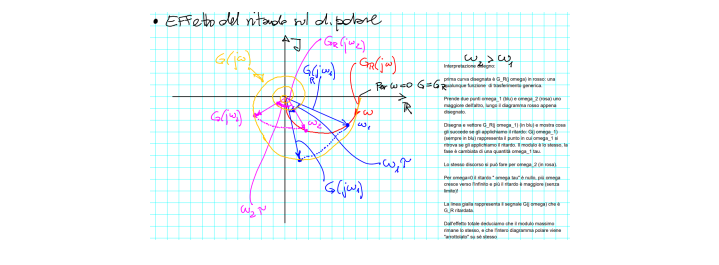 • Effetto del ritardo sul d. polare
ω₂ > ω₁
G_R(jω₂)
G(jω)
G_R(jω₁)
G_R(jω)
Per ω=0 G=G_R
R
ω
G(jω₂)
ω₂
ω₁
ω₁τ
G(jω₁)
ω₂τ
Interpretazione disegno:
prima curva disegnata è G_R(j omega) in rosso: una
qualunque funzione di trasferimento generica
Prende due punti omega_1 (blu) e omega_2 (rosa) uno
maggiore dell'altro, lungo il diagramma rosso appena
disegnato.
Disegna e vettore G_R(j omega_1) (in blu) e mostra cosa
gli succede se gli applichiamo il ritardo: G(j omega_1)
(sempre in blu) rappresenta il punto in cui omega_1 si
ritrova se gli applichiamo il ritardo. Il modulo è lo stesso, la
fase è cambiata di una quantità omega_1 tau.
Lo stesso discorso si può fare per omega_2 (in rosa).
Per omega=0 il ritardo " omega tau" è nullo, più omega
cresce verso l'infinito e più il ritardo è maggiore (senza
limite)!
La linea gialla rappresenta il segnale G(j omega) che è
G_R ritardata.
Dall'effetto totale deduciamo che il modulo massimo
rimane lo stesso, e che l'intero diagramma polare viene
"arrotolato" su sé stesso